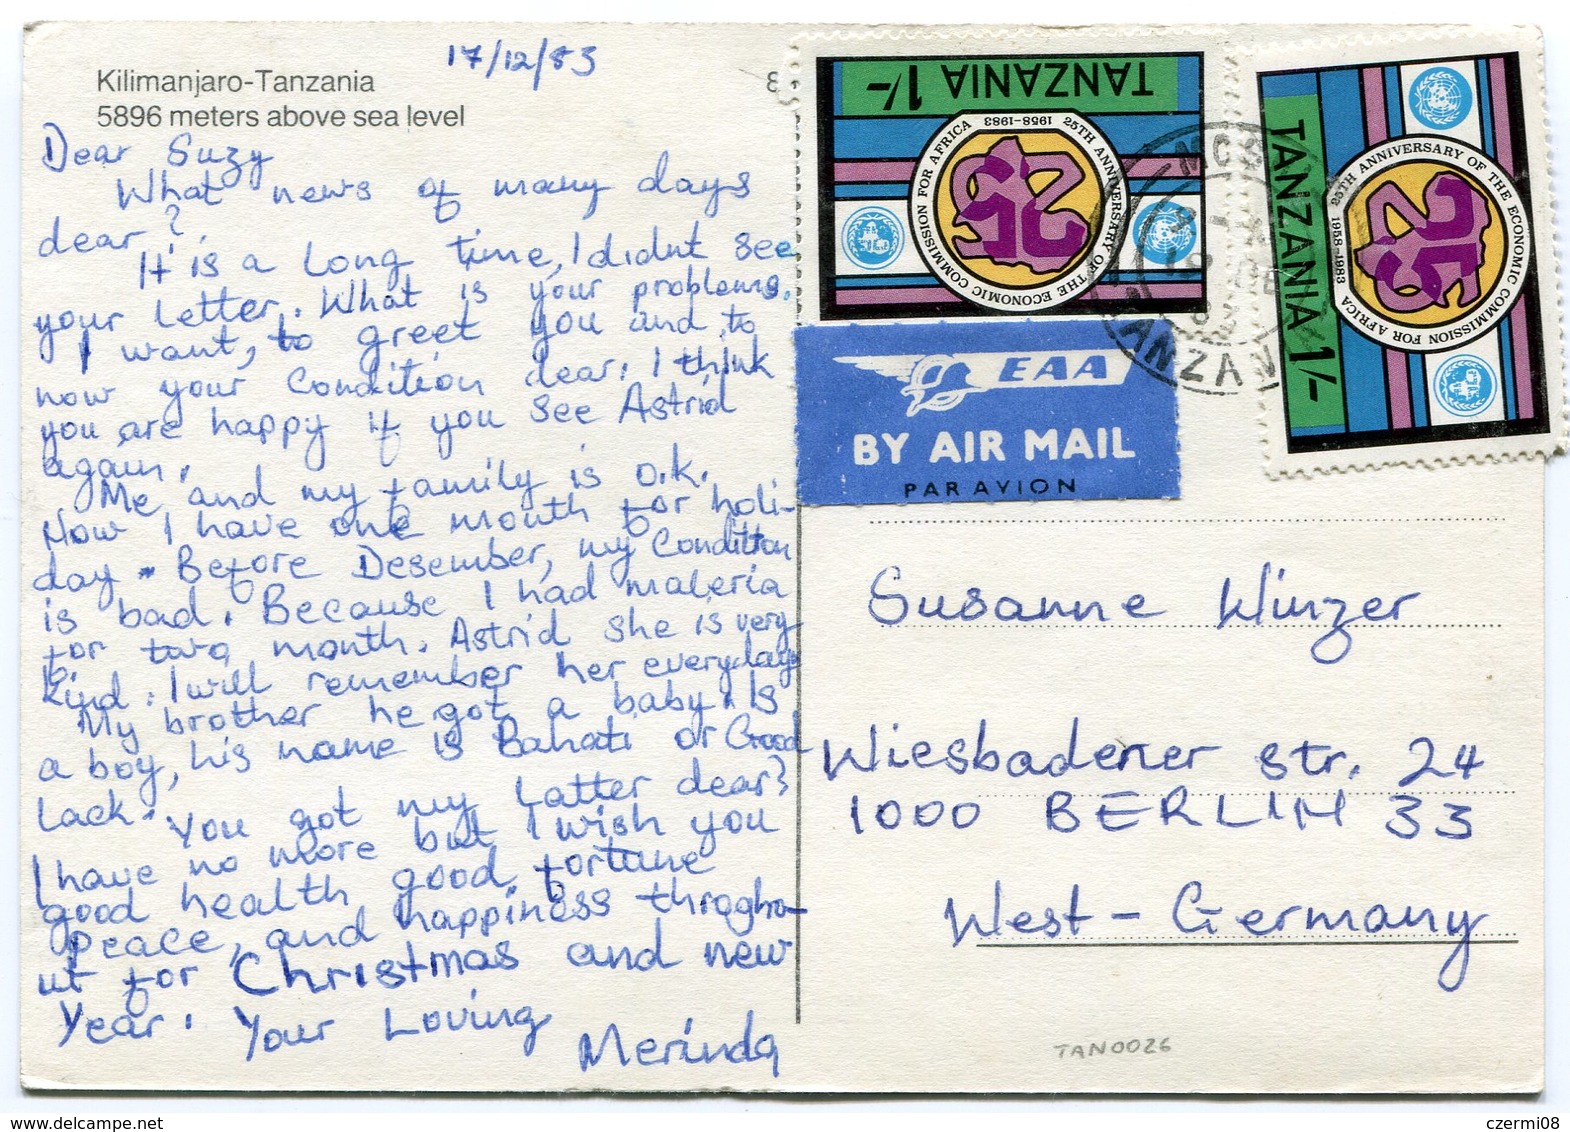 17/12/83
Kilimanjaro-Tanzania
5896 meters above sea level
8
Dear Suzy
What news of many days
dear?
It is a long time, I didnt see
your letter. What is your problems.
I want, to greet you and to
now your condition dear. I think
you are happy if you see Astrid
again.
Me and my family is o.k.
Now I have one month for holi-
day. Before Desember, my condition
is bad. Because I had maleria
for two month. Astrid she is very
kind. I will remember her everyday
My brother he got a baby. Is
a boy, his name is Bahati or Good
Lack.
You got my Latter dear?
I have no more but I wish you
good health good fortune
peace, and happiness througho-
ut for Christmas and new
Year. Your Loving
Merinda
TANZANIA 1/-
25TH ANNIVERSARY OF THE ECONOMIC COMMISSION FOR AFRICA
1958-1983
TANZANIA 1/-
25TH ANNIVERSARY OF THE ECONOMIC COMMISSION FOR AFRICA
1958-1983
EAA
BY AIR MAIL
PAR AVION
Susanne Winzer
Wiesbadener str. 24
1000 BERLIN 33
West-Germany
TAN0026
czermi08